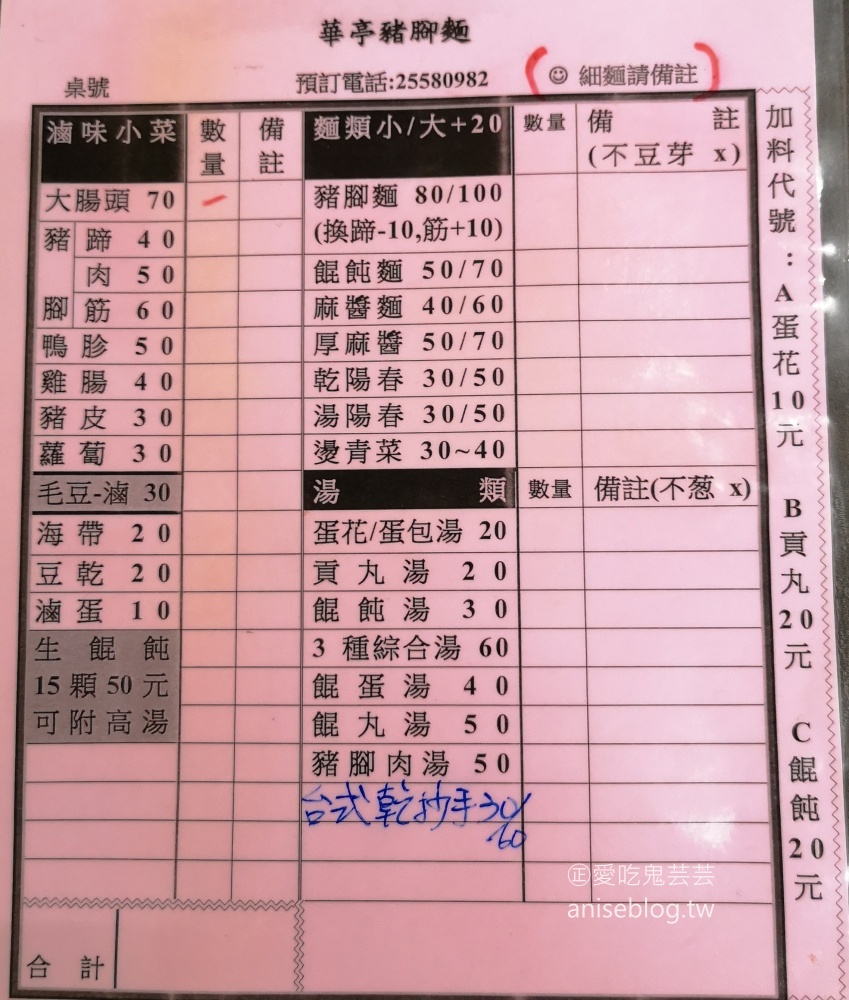 華亭豬腳麵
桌號
預訂電話:25580982
☺ 細麵請備註
滷味小菜 數量 備註
大腸頭 70
豬腳
蹄 40
肉 50
筋 60
鴨胗 50
雞腸 40
豬皮 30
蘿蔔 30
毛豆-滷 30
海帶 20
豆乾 20
滷蛋 10
生餛飩
15顆50元
可附高湯
合計
麵類小/大+20 數量 備註
(不豆芽 x)
豬腳麵 80/100
(換蹄-10,筋+10)
餛飩麵 50/70
麻醬麵 40/60
厚麻醬 50/70
乾陽春 30/50
湯陽春 30/50
燙青菜 30~40
湯類 數量 備註(不葱 x)
蛋花/蛋包湯 20
貢丸湯 20
餛飩湯 30
3 種綜合湯 60
餛蛋湯 40
餛丸湯 50
豬腳肉湯 50
台式乾抄手30/
60
加料代號:A蛋花10元 B貢丸20元 C餛飩20元
㊣愛吃鬼芸芸
aniseblog.tw